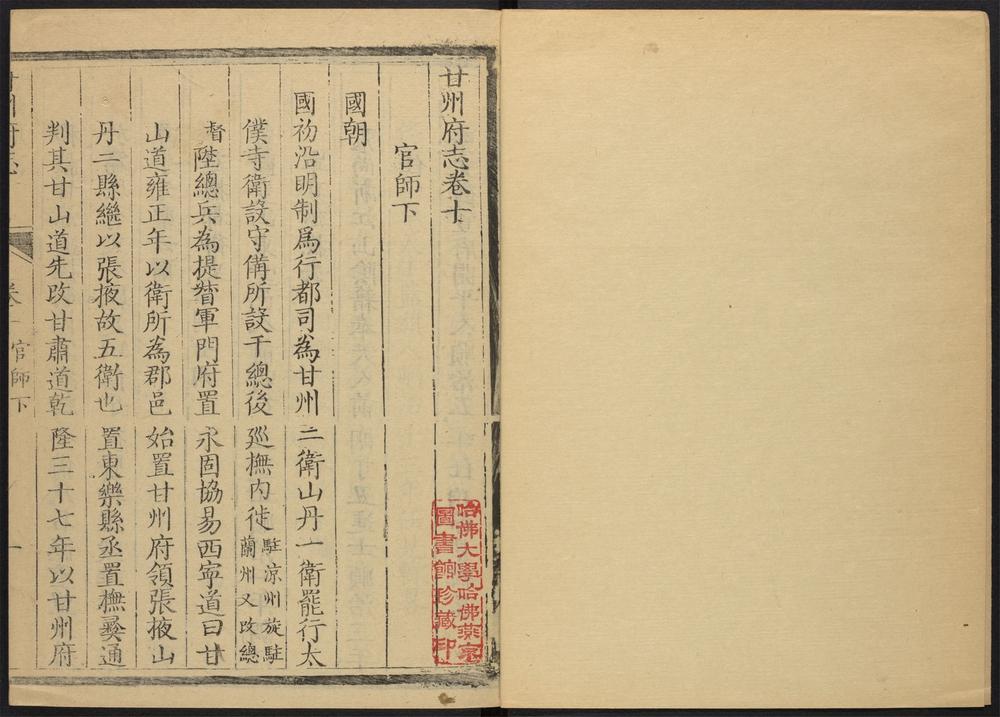 甘州府志卷十
官師下
國朝
國初沿明制為行都司為甘州二衛山丹一衛罷行太
僕寺衛設守備所設千總後廵撫內徙駐涼州旋駐蘭州又改總
督陞總兵為提督軍門府置永固協易西寧道曰甘
山道雍正年以衛所為郡邑始置甘州府領張掖山
丹二縣繼以張掖故五衛也置東樂縣丞置撫彝通
判其甘山道先改甘肅道乾隆三十七年以甘州府
官師下
一
哈佛大學哈佛燕京
圖書館珍藏印